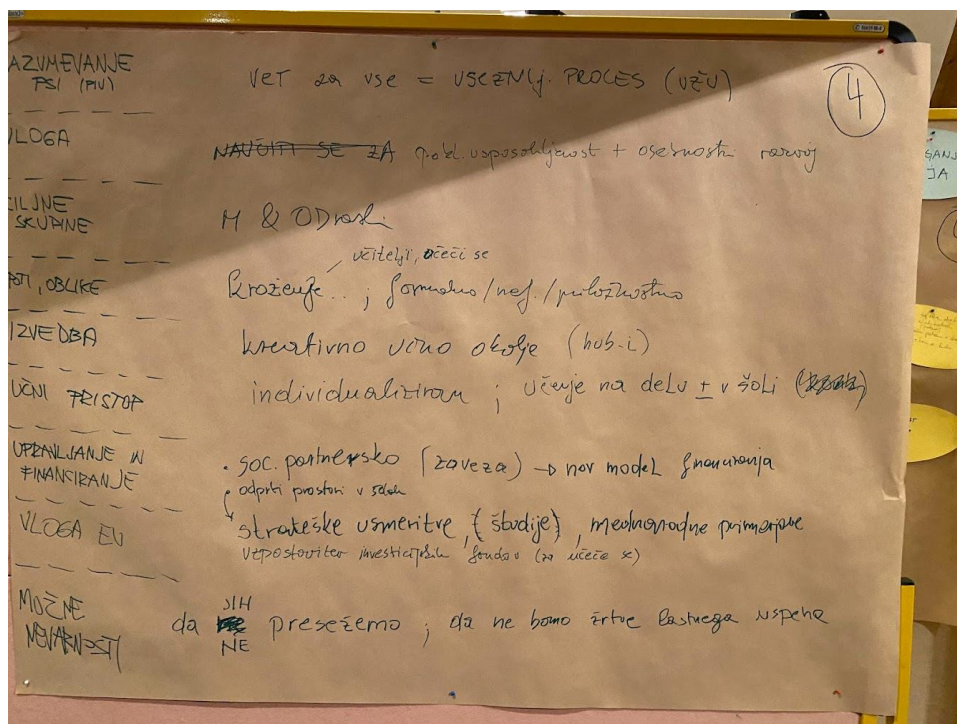 AZUMEVANJE
PSI (PIU)
VET za vse = VSEŽIVLJ. PROCES (VŽU)
4
VLOGA
NAUČITI SE ZA pokl. usposobljenost + osebnostni razvoj
CILJNE
SKUPINE
M & ODrasli
učitelji, učeči se
POTI, OBLIKE
Kroženje .. ; formalno/nef./priložnostno
IZVEDBA
kreativno učno okolje (hub-i)
UČNI PRISTOP
individualiziran ; učenje na delu ± v šoli
UPRAVLJANJE IN
FINANCIRANJE
• soc. partnersko (zaveza) → nov model financiranja
• odprti prostori v šolah
VLOGA EU
strateške usmeritve, (študije), mednarodne primerjave
vzpostavitev investicijskih fondov (za učeče se)
MOŽNE
NEVARNOSTI
JIH
da presežemo ; da ne bomo žrtve lastnega uspeha
NE
GANJ
JA